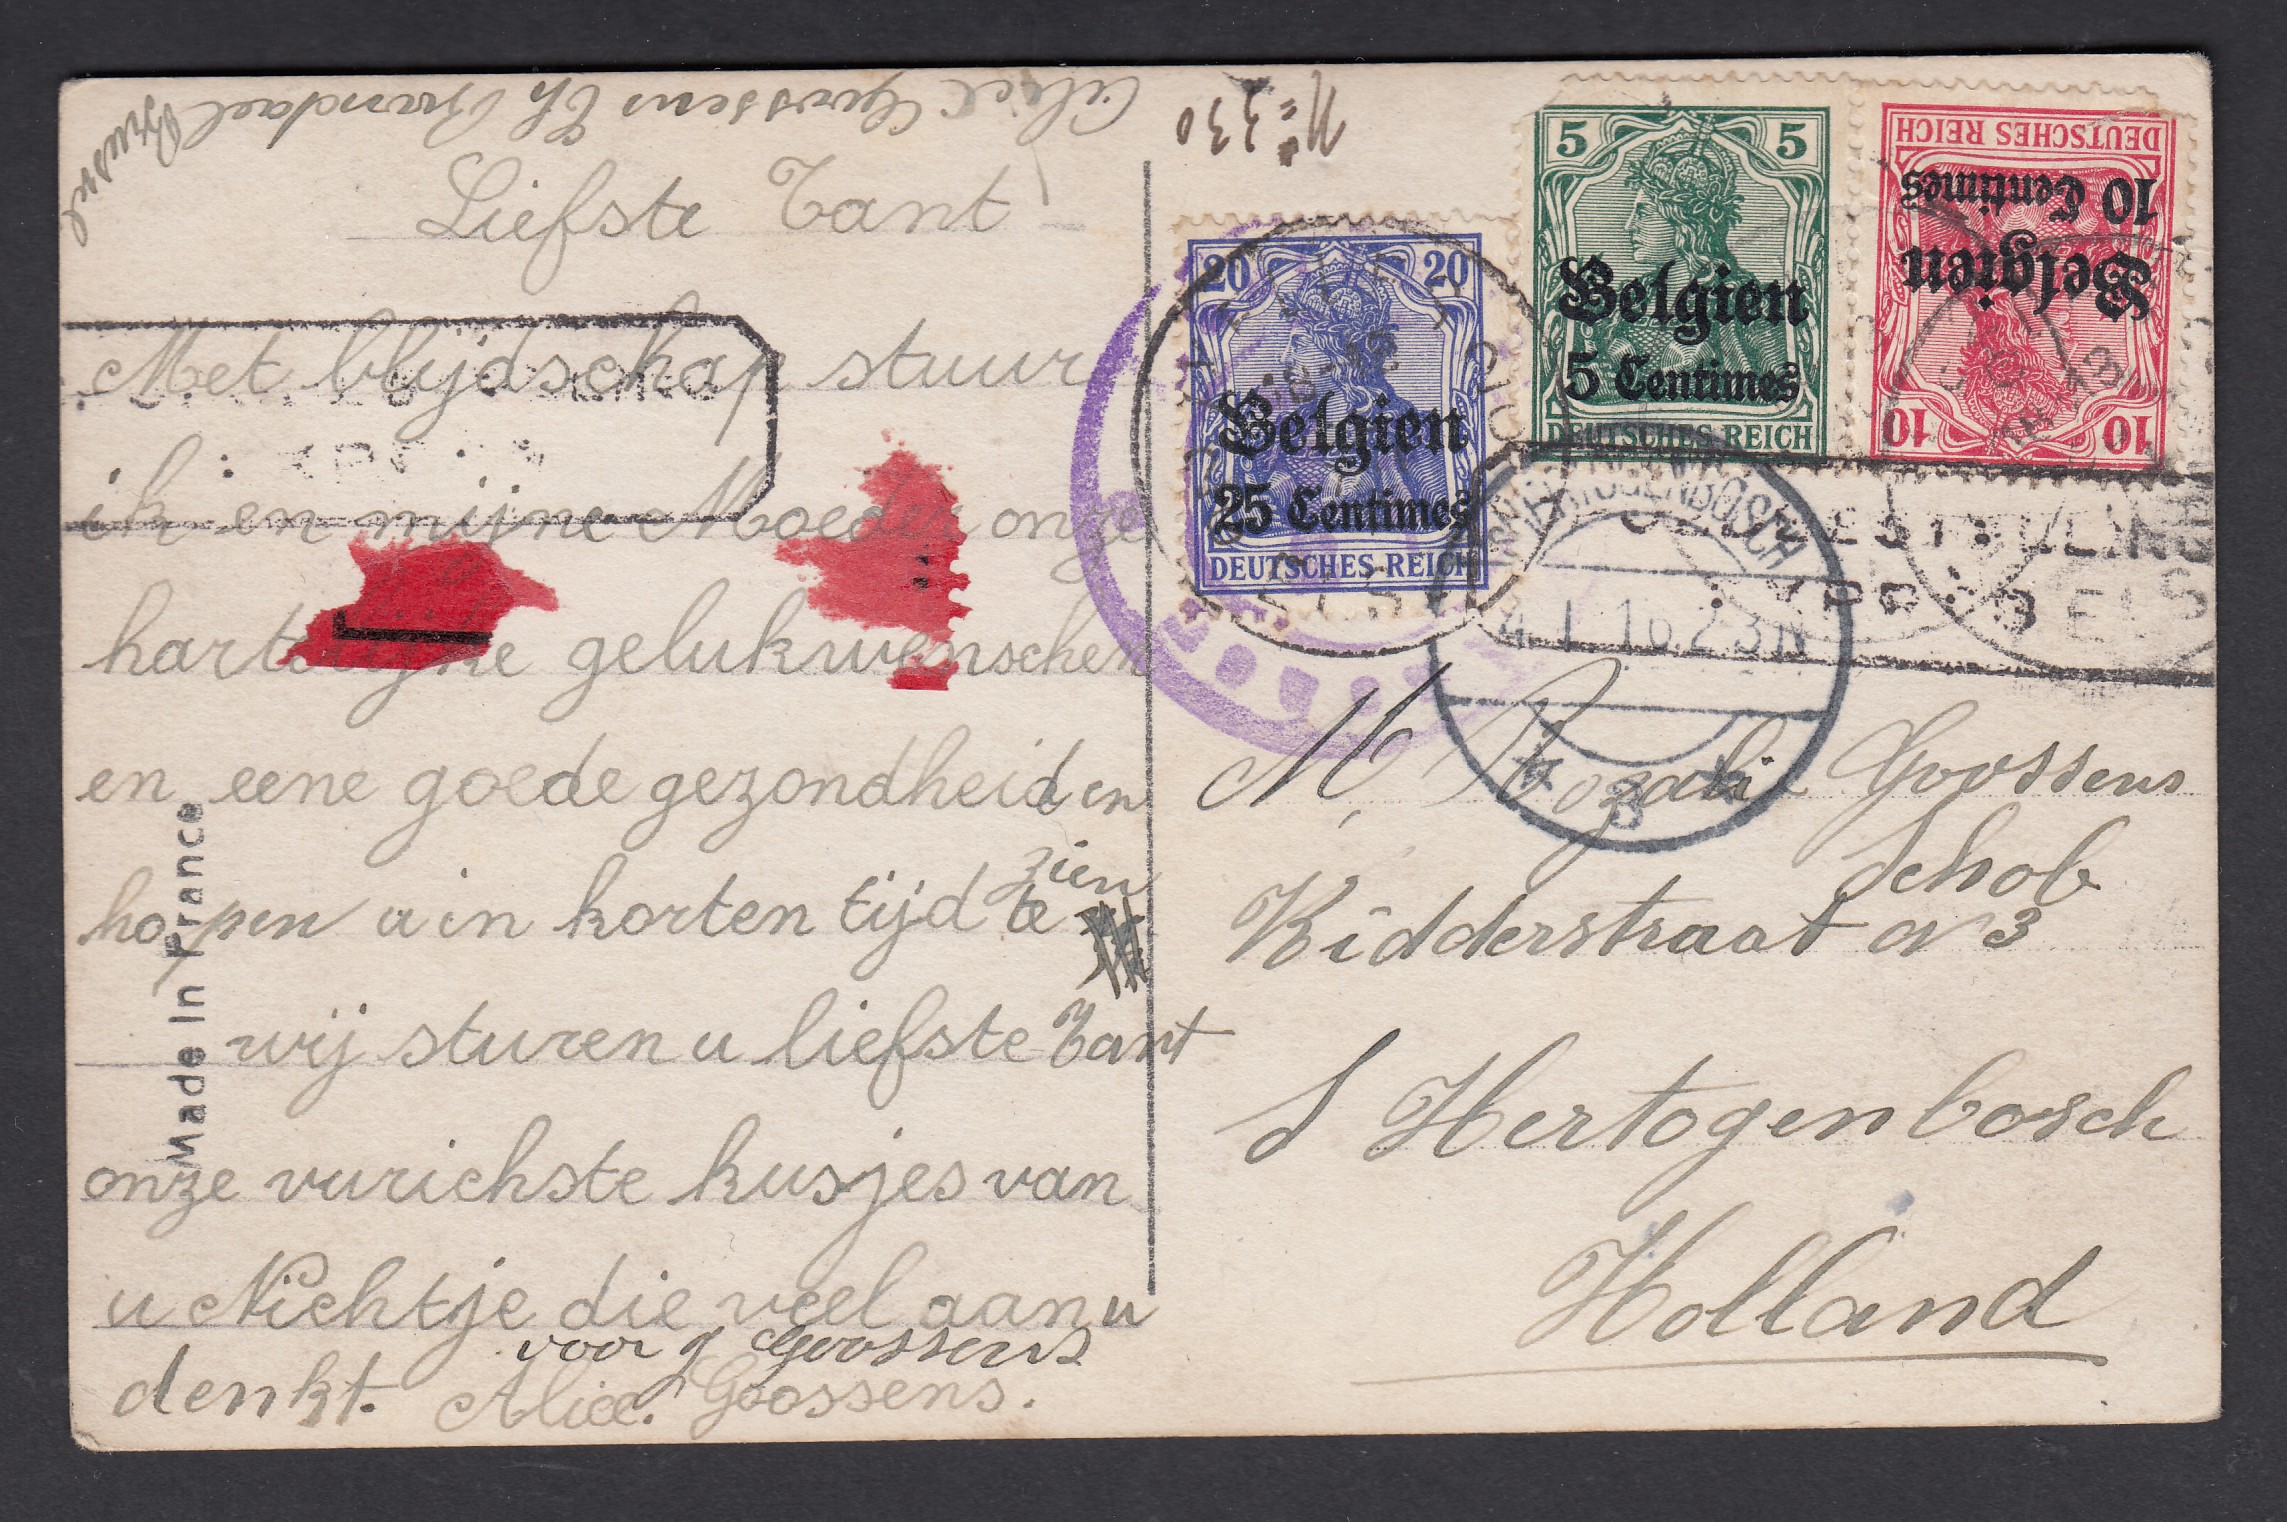 Alice Goossens
N° 330
Liefste Tant
Met blijdschap stuur
ik en mijne Moeder onze
hartelijke gelukwenschen
en eene goede gezondheid en
hopen u in korten tijd te zien
wij sturen u liefste Tant
onze vurichste kusjes van
u Nichtje die veel aan u
denkt. Alice Goossens.
voor g Goossens
Made in France
20 20
Belgien
25 Centimes
DEUTSCHES REICH
5 5
Belgien
5 Centimes
DEUTSCHES REICH
DEUTSCHES REICH
10 Centimes
Belgien
10 10
HERTOGENBOSCH
4.1.16.2-3N
3
M, Rozalie Goossens
Schob
Ridderstraat N 3
S Hertogenbosch
Holland